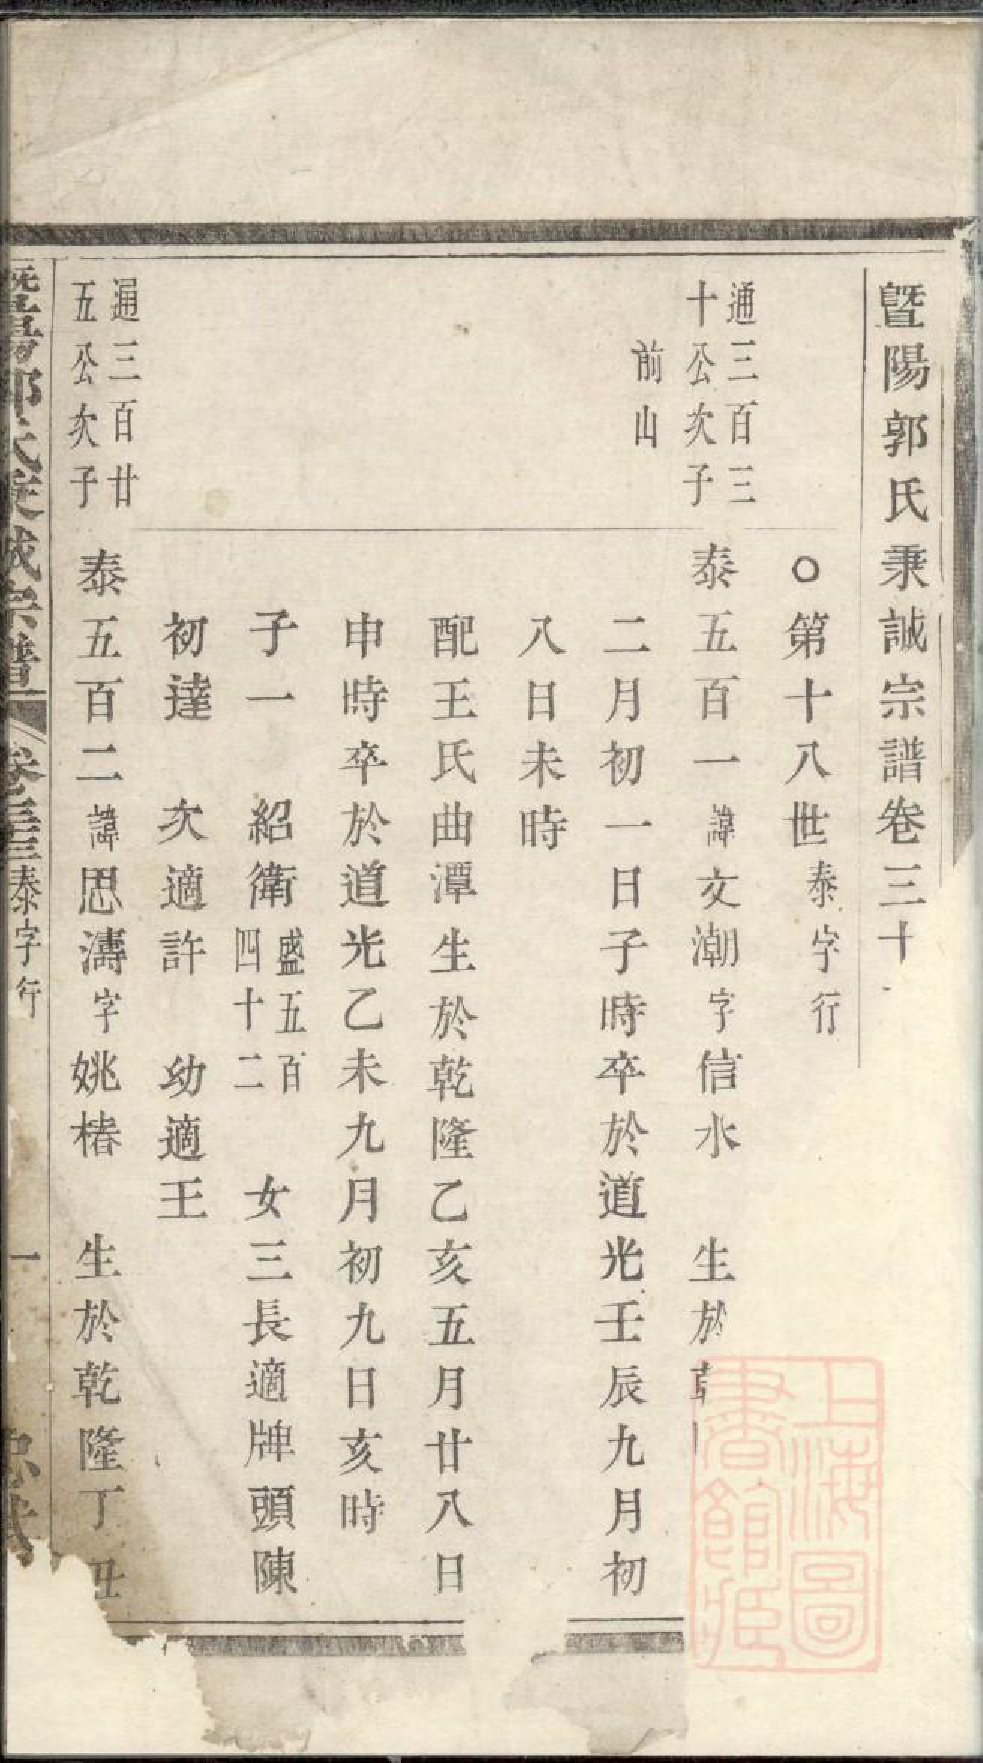 暨陽郭氏秉誠宗譜卷三十
○第十八世泰字行
通三百三
十公次子
前山
泰五百一諱文潮字信水 生於乾
二月初一日子時卒於道光壬辰九月初
八日未時
配王氏曲潭生於乾隆乙亥五月廿八日
申時卒於道光乙未九月初九日亥時
子一 紹衛盛五百四十二 女三長適牌頭陳
初達 次適許 幼適王
通三百廿
五公次子
泰五百二諱思濤字姚椿 生於乾隆丁丑
暨陽郭氏秉誠宗譜 卷三十 泰字行 一
上海圖
書館藏